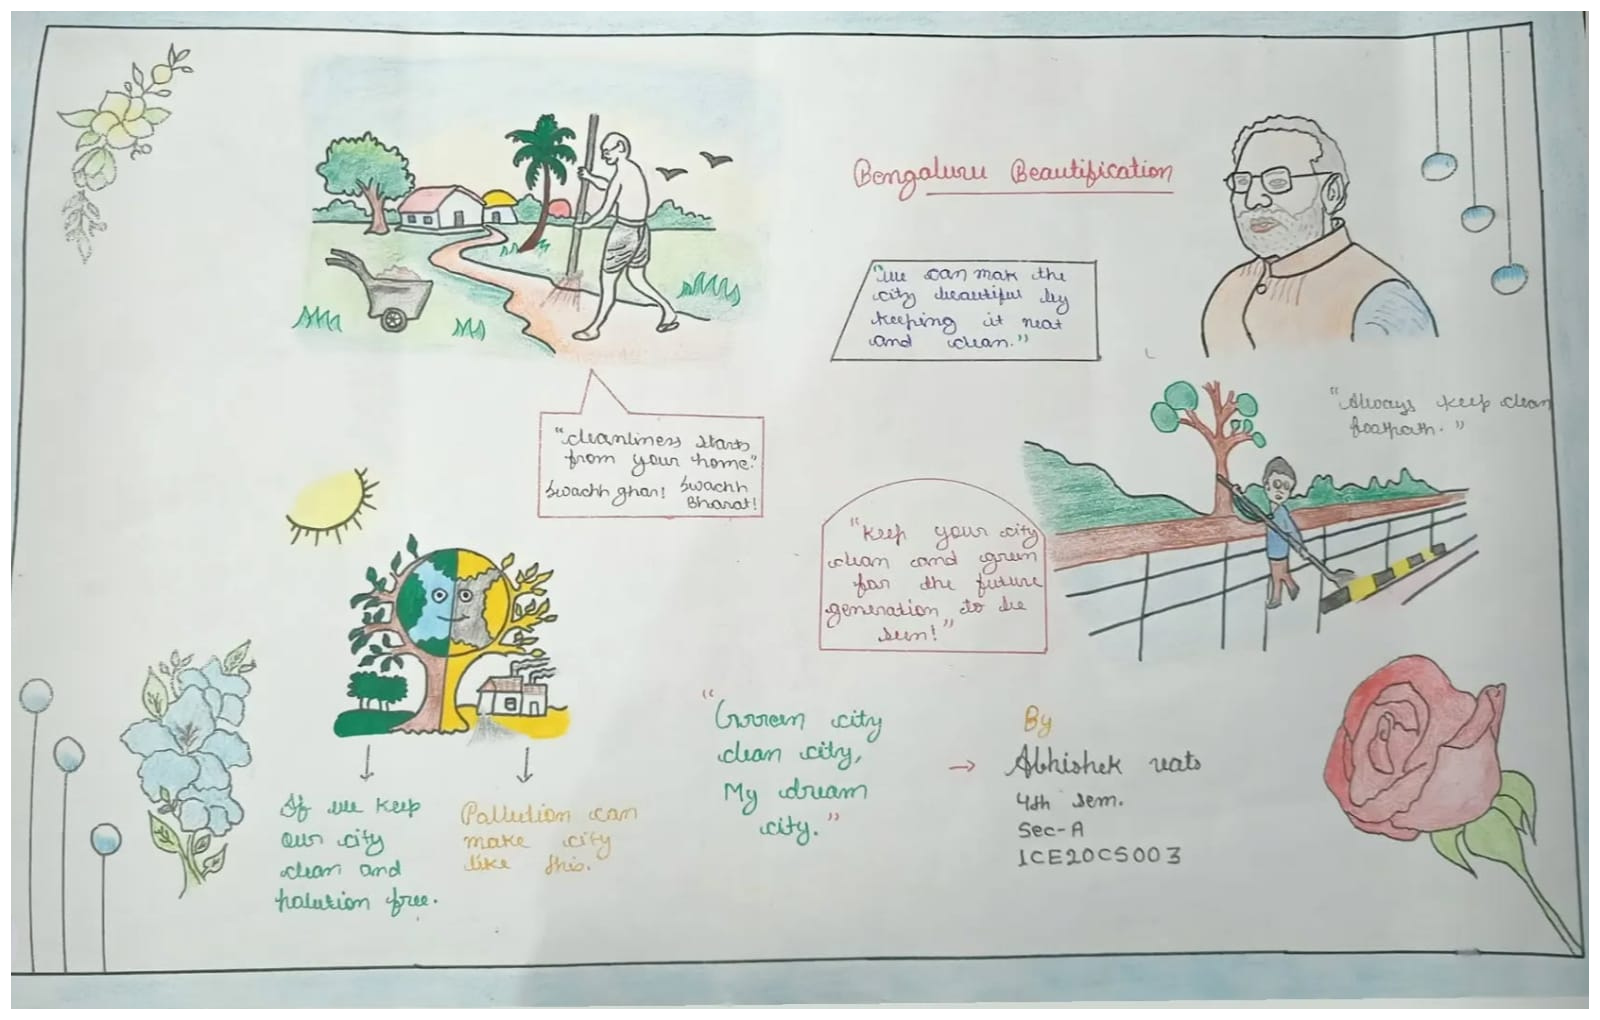 Bengaluru Beautification
"we can mak the
city beautiful by
keeping it neat
and clean."
"Always keep clean
footpath."
"cleanliness starts
from your home."
swachh ghar! swachh
Bharat!
"Keep your city
clean and green
for the future
generation to be
seen!"
If we keep
our city
clean and
polution free.
Pollution can
make city
like this.
"Green city
clean city,
My dream
city."
→ By
Abhishek vats
4th sem.
Sec-A
1CE20CS003